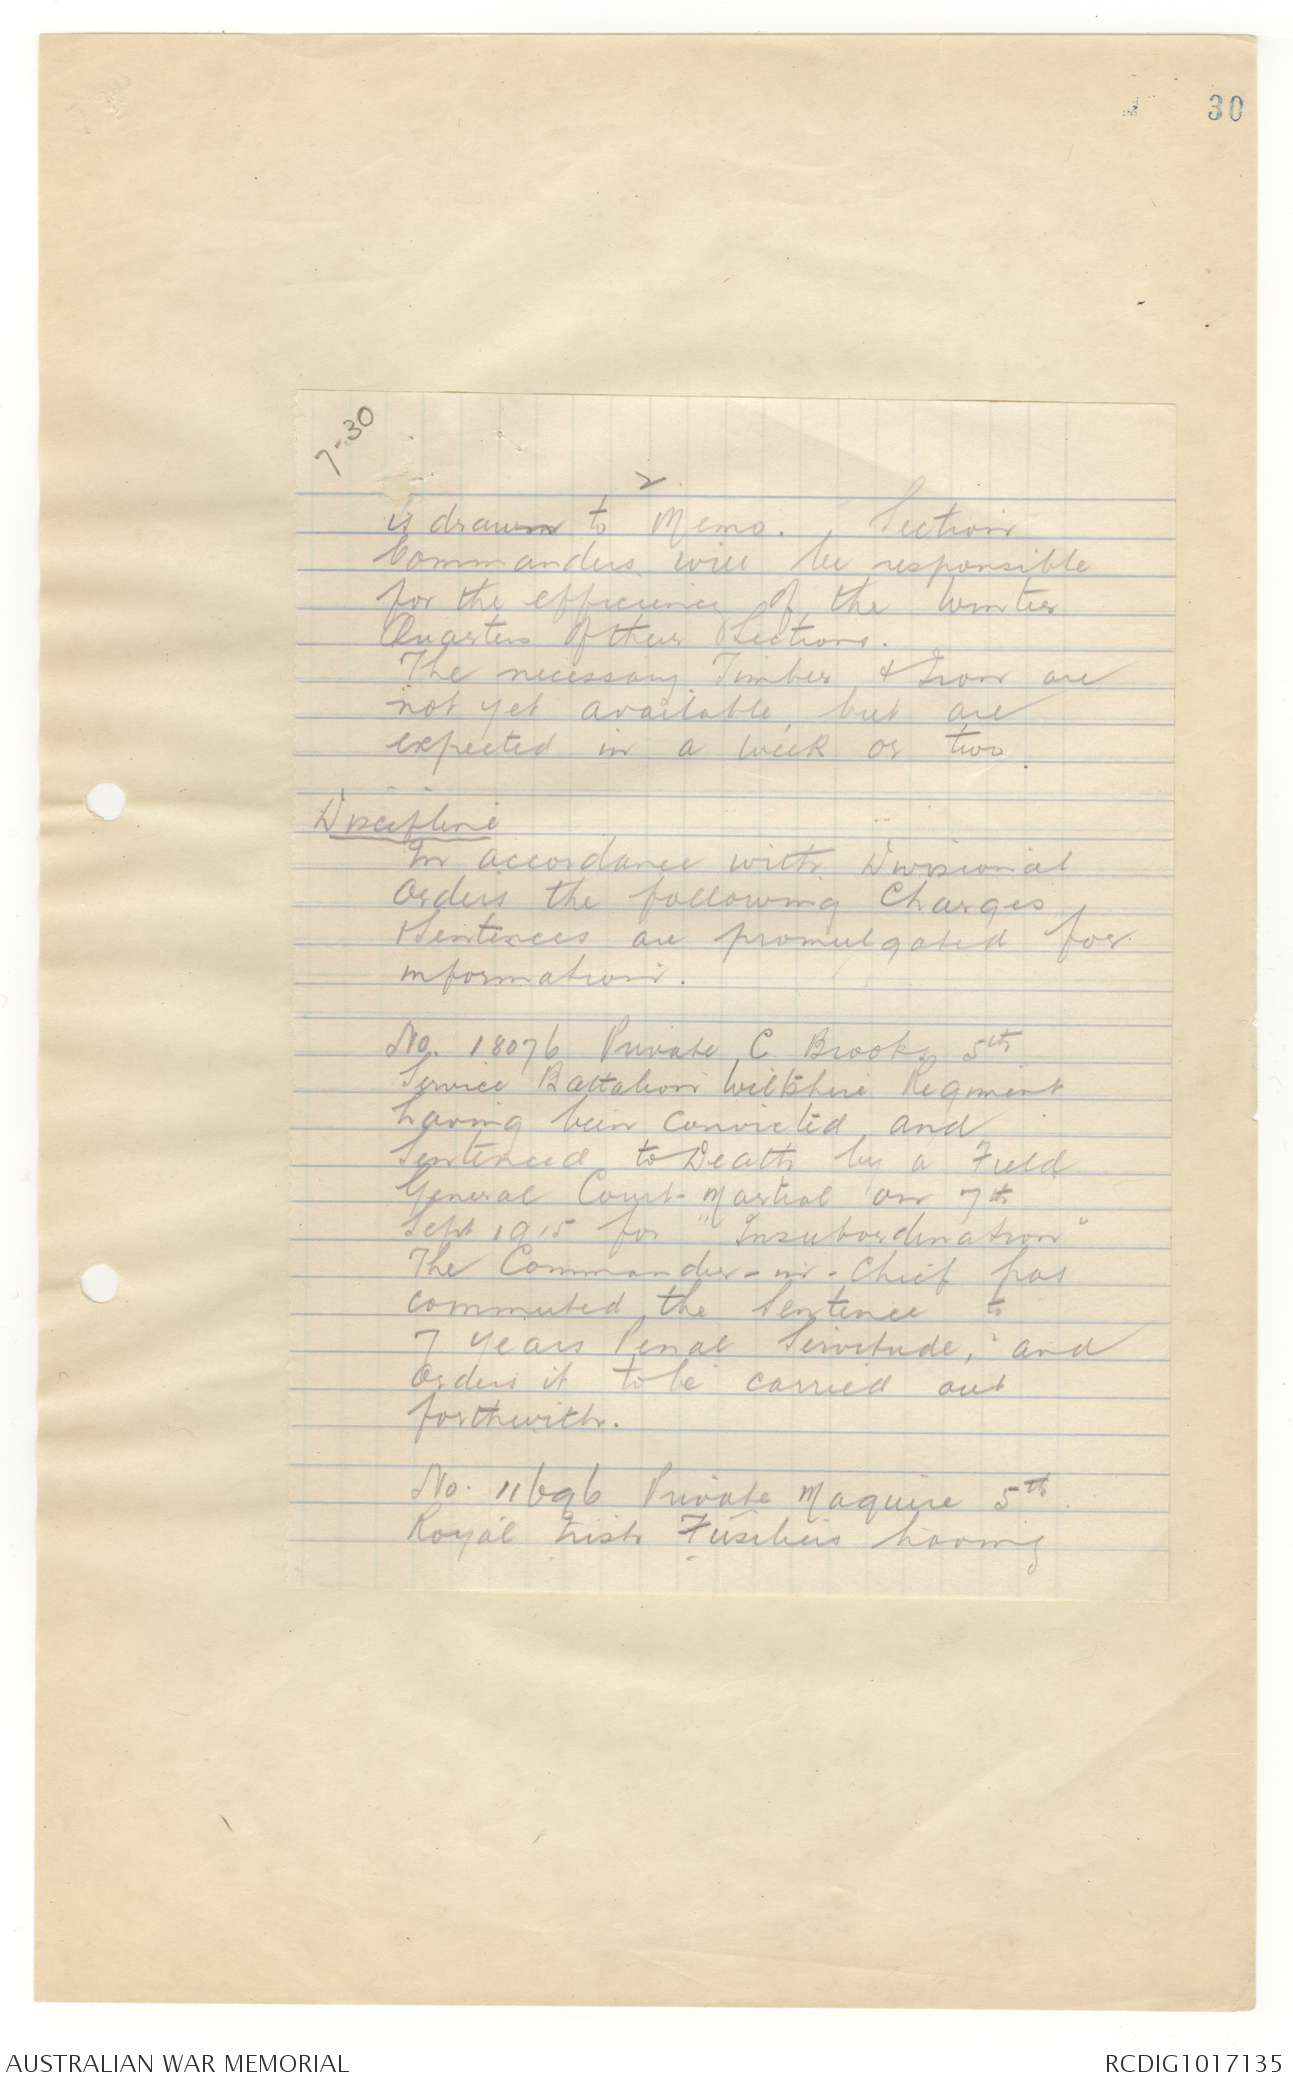 30
7-30
2
is drawn to Memo. Section
Commanders will be responsible
for the efficiency of the Winter
Quarters of their Sections.
The necessary Timber & Iron are
not yet available, but are
expected in a week or two.
Discipline
In accordance with Divisional
Orders the following Charges
Sentences are promulgated for
information.
No. 18076 Private C Brooks 5th
Service Battalion Wiltshire Regiment
having been convicted and
Sentenced to Death by a Field
General Court-Martial on 7th
Sept 1915 for "Insubordination"
The Commander-in-Chief has
commuted the Sentence to
7 years Penal Servitude, and
Orders it to be carried out
forthwith.
No. 11696 Private Maguire 5th
Royal Irish Fusiliers having
AUSTRALIAN WAR MEMORIAL
RCDIG1017135